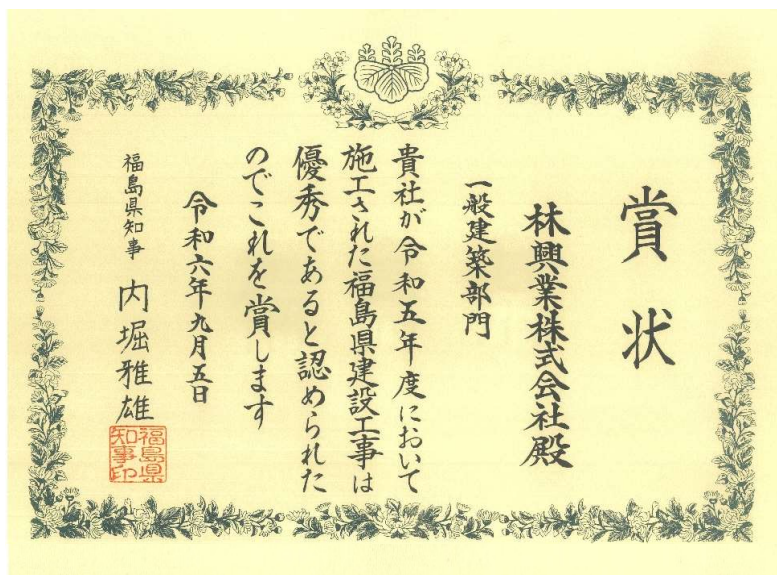 賞状
林興業株式会社殿
一般建築部門
貴社が令和五年度において
施工された福島県建設工事は
優秀であると認められた
のでこれを賞します
令和六年九月五日
福島県知事 内堀雅雄
福島県
知事印